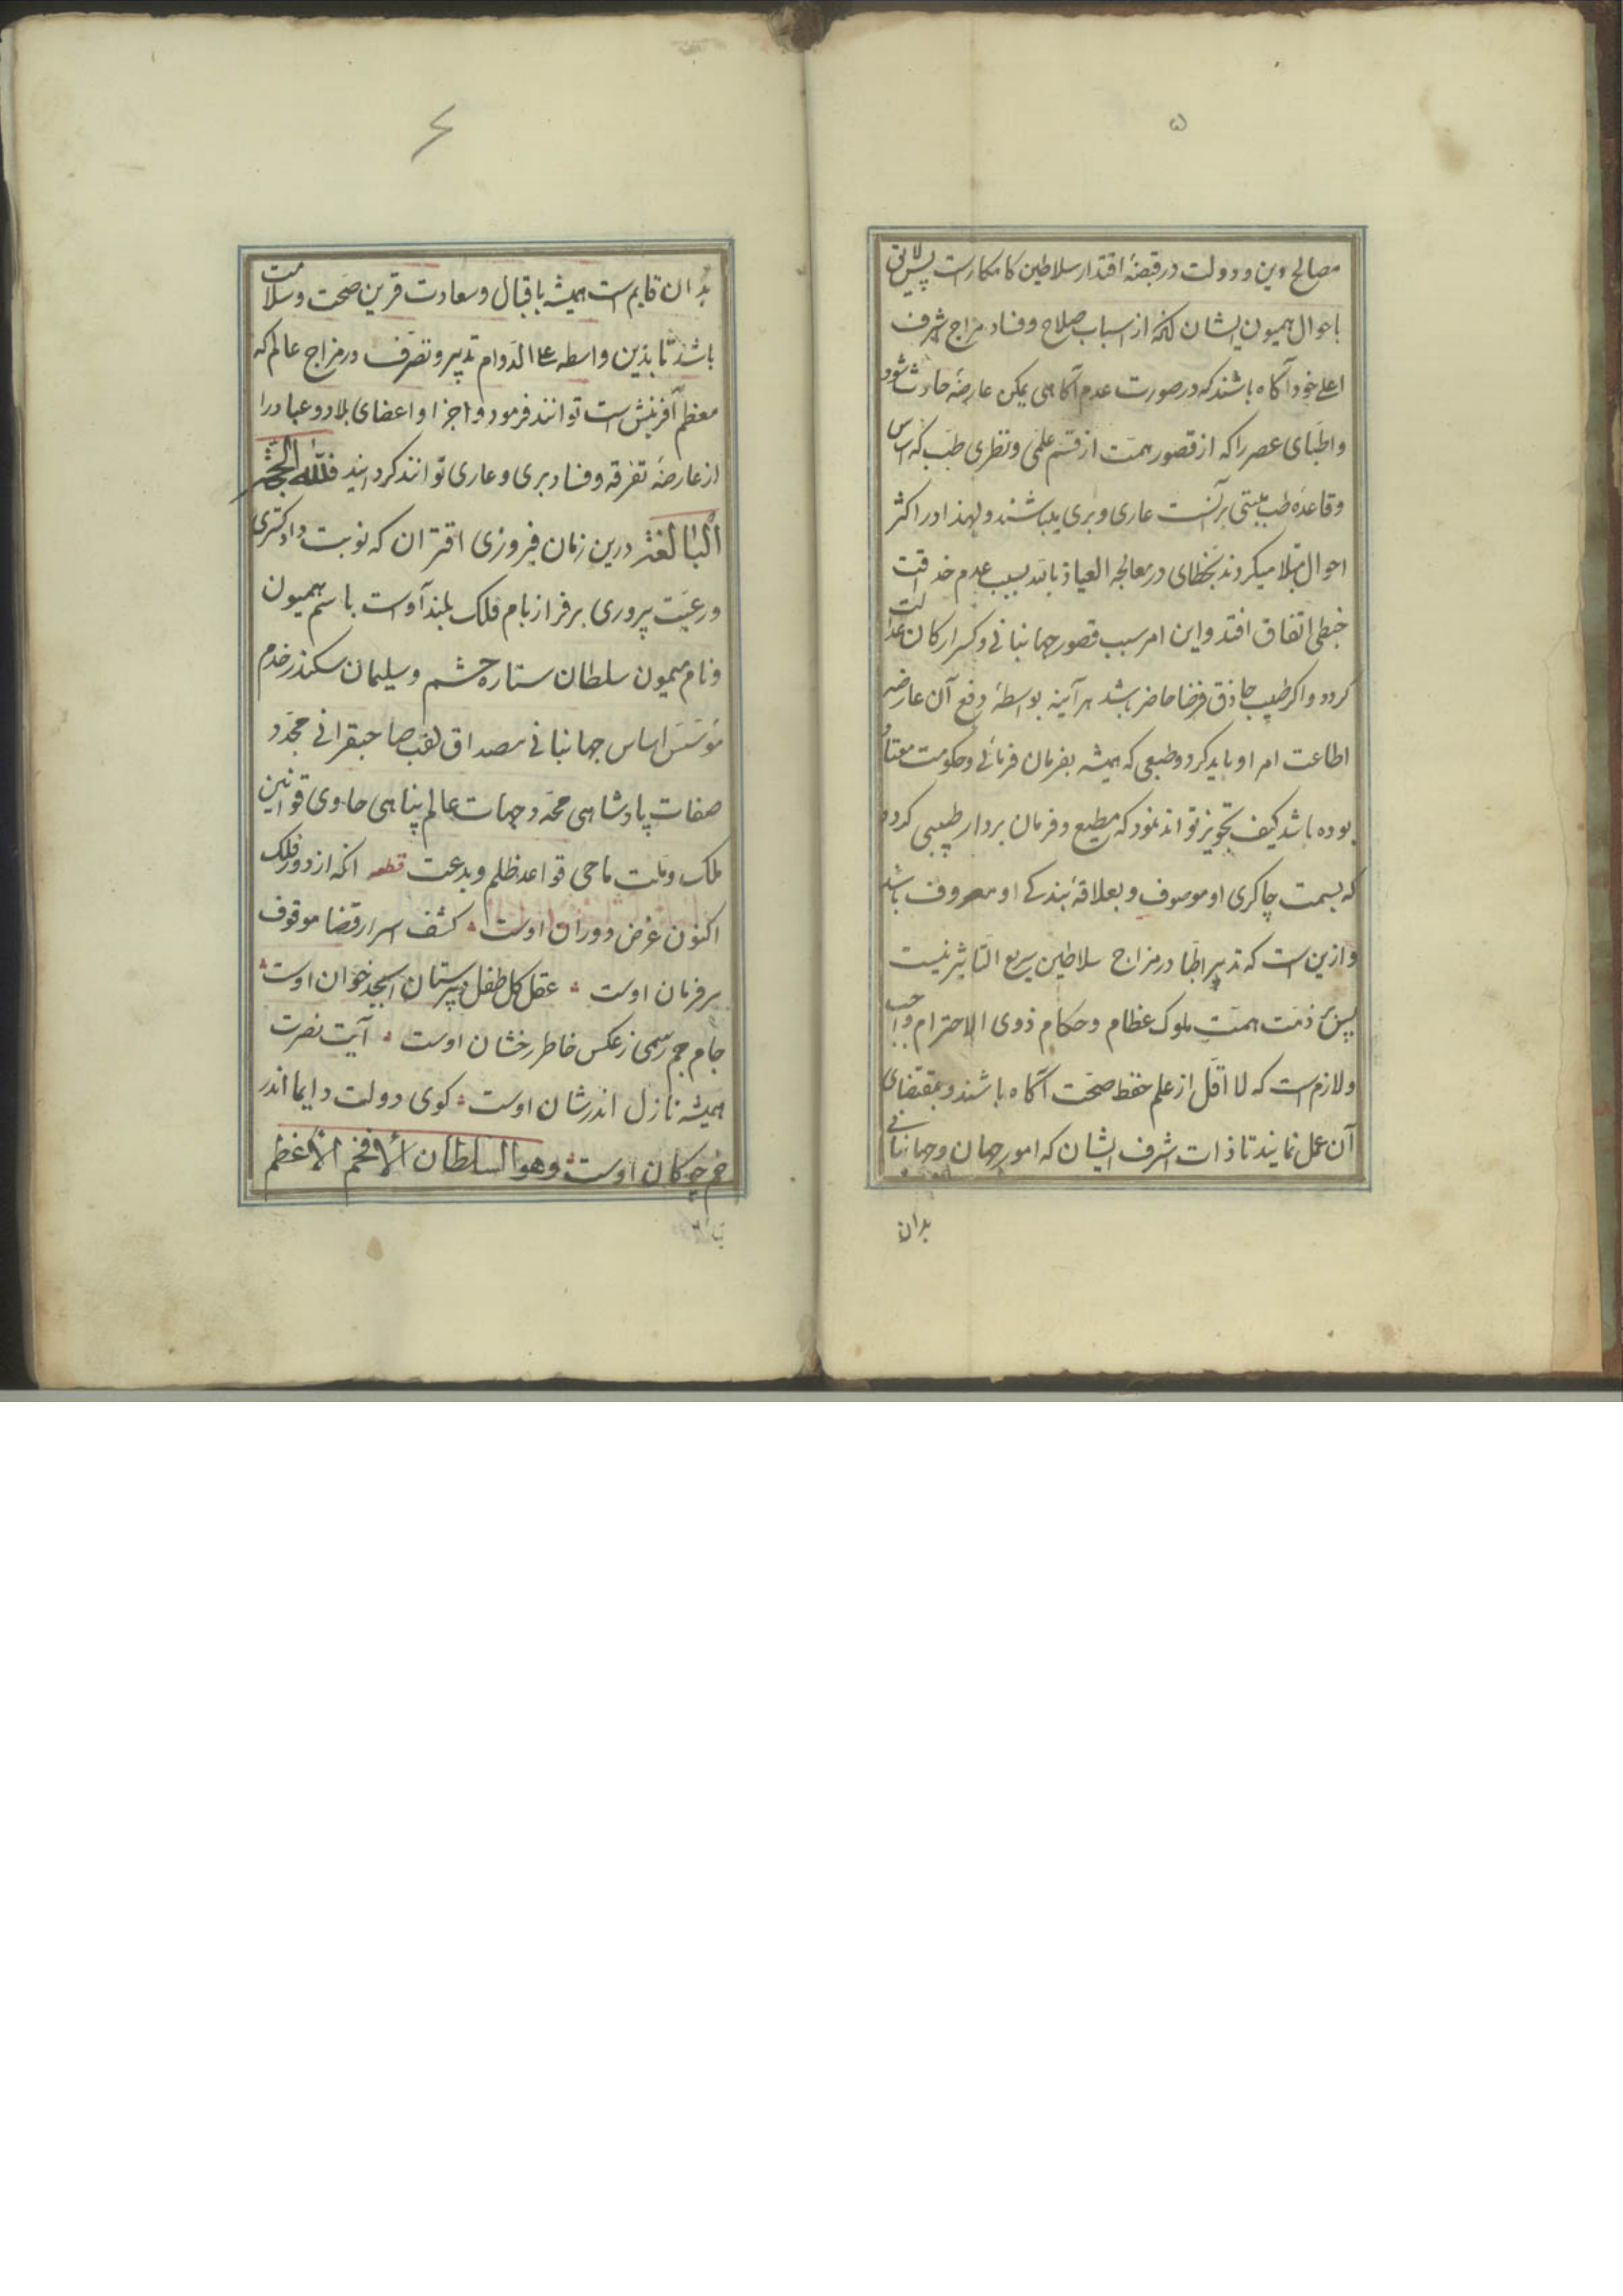 ۵
مصالح دین و دولت در قبضهٔ اقتدار سلاطین کامکارست پس لایق
باحوال همیون ایشان آنکه از اسباب صلاح و فساد مزاج اشرف
اعلی خود آگاه باشند که در صورت عدم آگاهی یمکن عارضهٔ حادث شود
و اطبای عصر را که از قصور همت از قسم علمی و نظری طب که اساس
و قاعده طب مبتنی بر آنست عاری و بری میباشند ولهذا در اکثر
احوال مبتلا میکردند بخطای در معالجه العیاذ بالله بسبب عدم حذاقت
خبطی اتفاق افتد و این امر سبب قصور جهانبانی و کسر ارکان عدالت
کردد و اکر طبیب حاذق فرضا حاضر باشد هر آینه بواسطهٔ دفع آن عارضه
اطاعت امر او باید کرد و طبعی که همیشه بفرمان فرمائی و حکومت معتاد
بوده باشد کیف تجویز تواند نمود که مطیع و فرمان بردار طبیبی کردد
که بسمت چاکری او موصوف و بعلاقهٔ بندکی او معروف باشد
و ازین است که تدبیر اطبا در مزاج سلاطین سریع التاثیر نیست
پس بر ذمت همت ملوک عظام و حکام ذوی الاحترام واجب
و لازم است که لا اقل از علم حفظ صحت آگاه باشند و بمقتضای
آن عمل نمایند تا ذات اشرف ایشان که امور جهان و جهانبانی
بدان
۶
بدان قایم است همیشه باقبال و سعادت قرین صحت و سلامت
باشد تا بدین واسطه علی الدوام تدبیر و تصرف در مزاج عالم که
معظم آفرینش است توانند فرمود و اجزا و اعضای بلاد و عباد را
از عارضهٔ تفرقه و فساد بری و عاری توانند کردانید فلله الحجة
البالغة درین زمان فیروزی اقتران که نوبت دادکستری
و رعیت پروری بر فراز بام فلک بلند آوست باسم همیون
و نام میمون سلطان ستاره حشم و سلیمان سکندر خدم
موسس اساس جهانبانی مصداق لقب صاحبقرانی مجدد
صفات پادشاهی محدد جهات عالم پناهی حاوی قوانین
ملک و ملت ماحی قواعد ظلم و بدعت قطعه آنکه از دور فلک
اکنون غرض دوران اوست کشف اسرار قضا موقوف
بر فرمان اوست عقل کل طفل دبیرستان ابجد خوان اوست
جام جم رسمی ز عکس خاطر رخشان اوست آیت نصرت
همیشه نازل اندر شان اوست کوی دولت دایما اندر
خم چوکان اوست وهو السلطان الافخم الاعظم